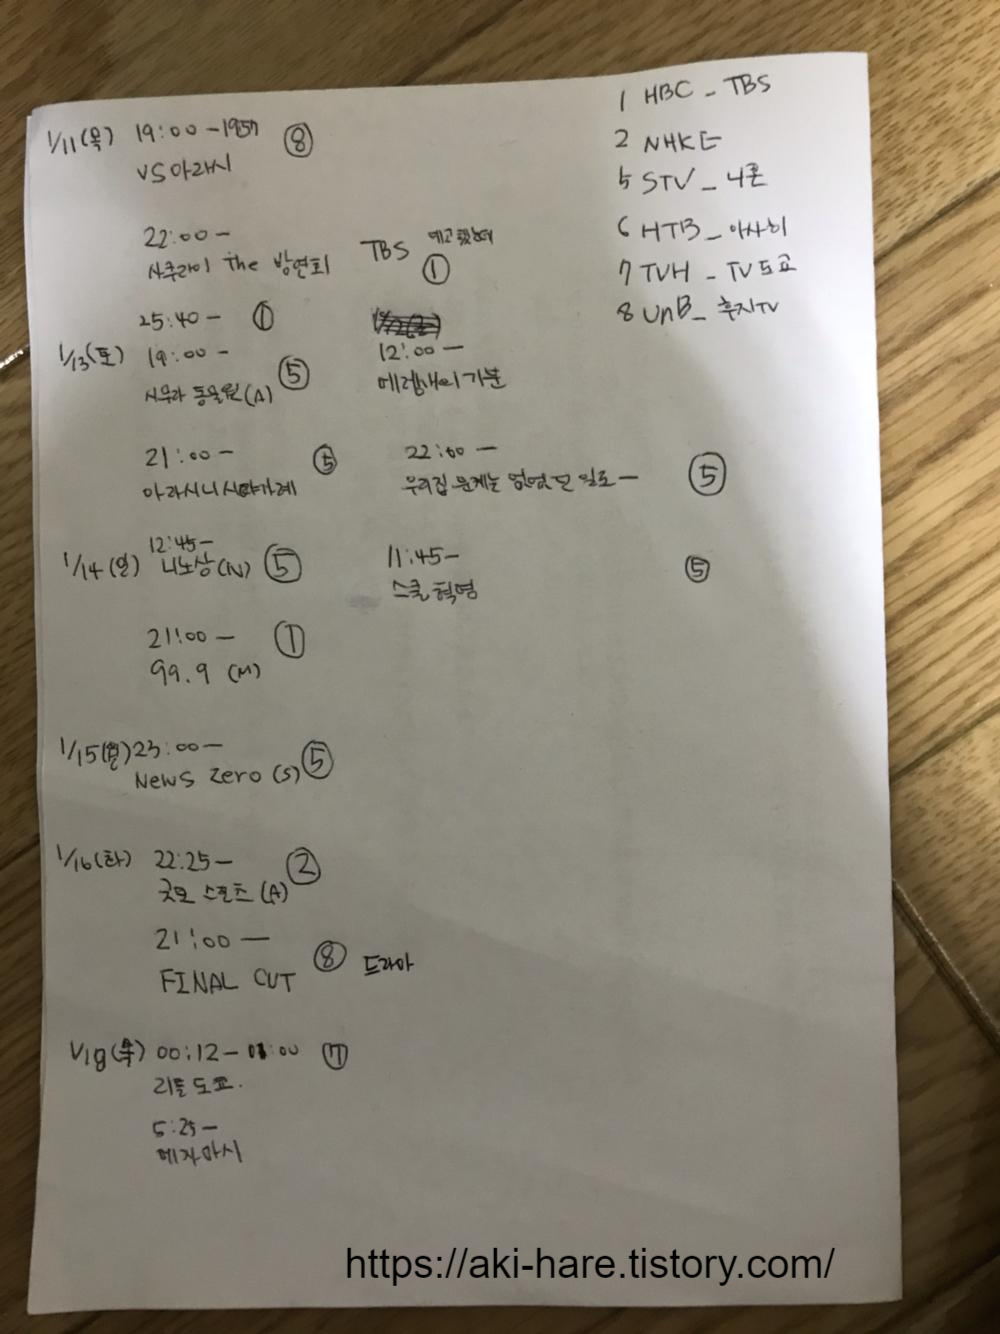 1/11(목) 19:00-1957 ⑧
VS아래시
22:00-
사쿠라이 The 방연회 TBS ①
25:40- ①
1/13(토) 19:00- ⑤
시무라 동물원(A)
12:00-
메렝게의 기분
21:00- ⑤
아라시니시야가레
22:00- ⑤
우리집 문제는 없었던 일로-
1/14(일) 12:45- ⑤
니노상(N)
11:45- ⑤
스쿨혁명
21:00- ①
99.9 (M)
1/15(월) 23:00- ⑤
News Zero (S)
1/16(화) 22:25- ②
굿모 스포츠 (A)
21:00- ⑧
FINAL CUT 드라마
1/18(목) 00:12-01:00 ⑦
리틀도쿄.
5:25-
메자마시
1 HBC_TBS
2 NHKE
5 STV_니혼
6 HTB_아사히
7 TVH_TV도쿄
8 UHB_후지TV
https://aki-hare.tistory.com/